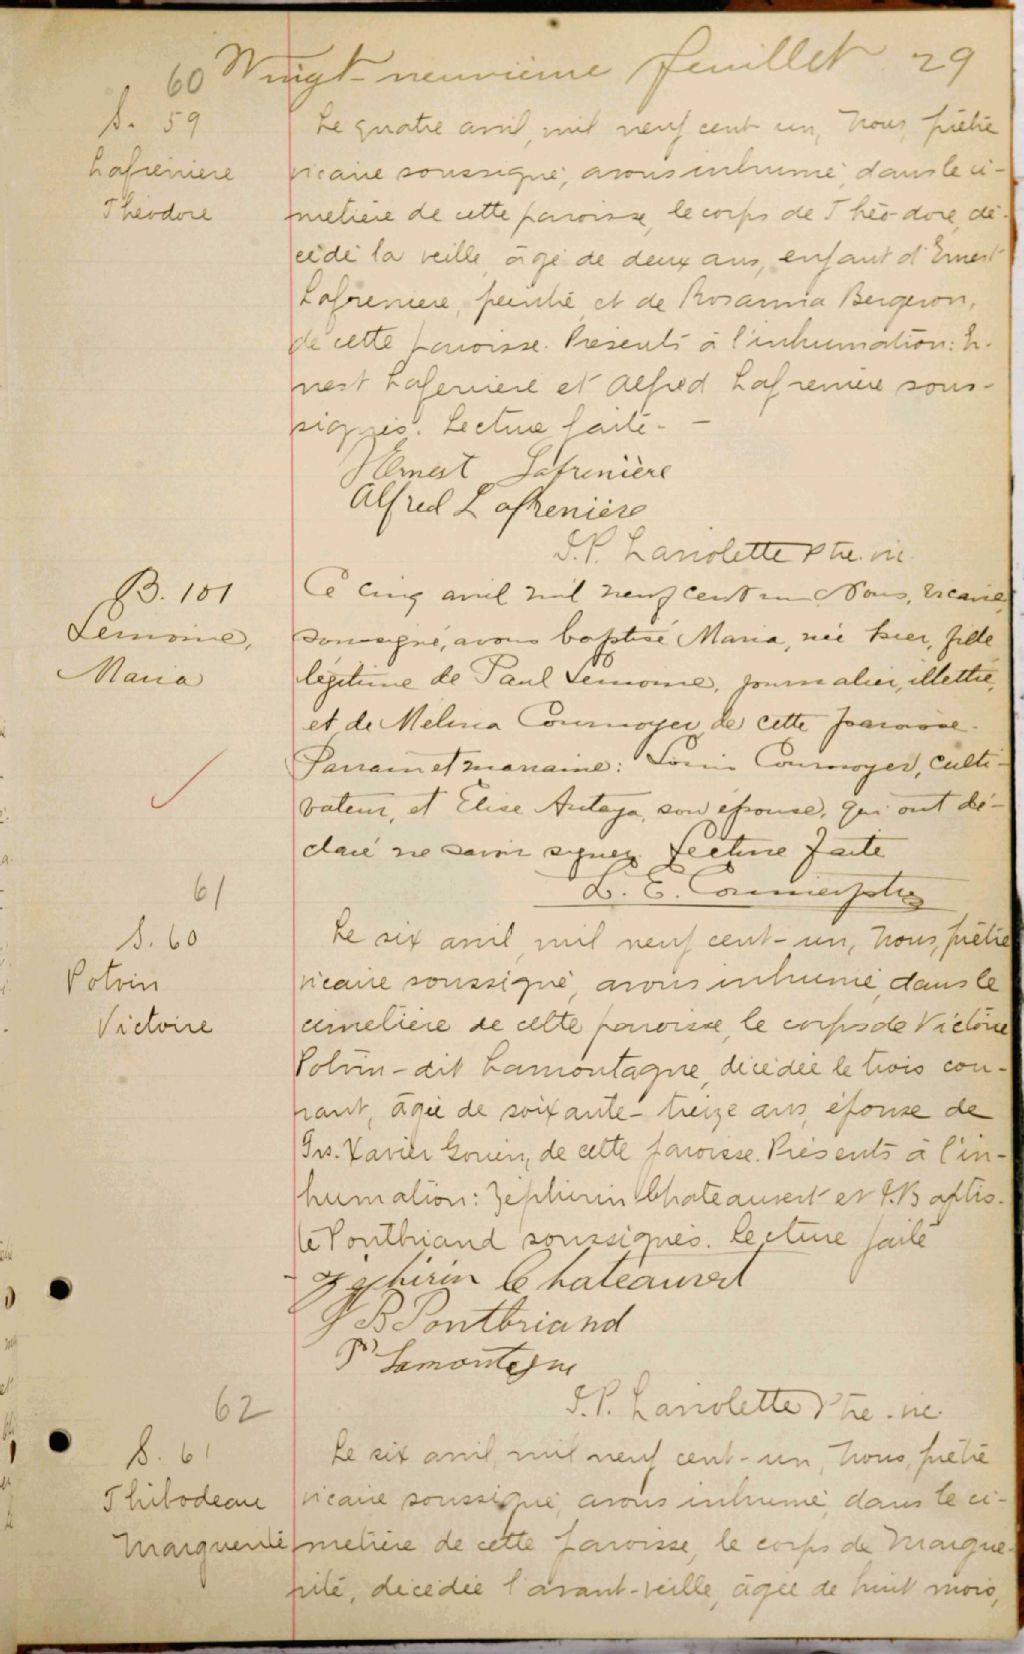 60 Vingt-neuvième feuillet 29
S. 59
Lafrenière
Théodore
Le quatre avril, mil neuf cent-un, Nous, prêtre
vicaire soussigné, avons inhumé, dans le ci-
metière de cette paroisse, le corps de Théo-dore, dé-
cédé la veille, âgé de deux ans, enfant d'Ernest
Lafrenière, peintre, et de Rosanna Bergeron,
de cette paroisse. Présents à l'inhumation: Er-
nest Lafernière et Alfred Lafrenière sous-
signés. Lecture faite. -
J Ernest Lafrenière
Alfred Lafrenière
J.P. Laviolette Ptre. vic.
B. 101
Lemoine,
Maria
Ce cinq avril mil neuf cent un Nous, vicaire
soussigné, avons baptisé Maria, née hier, fille
légitime de Paul Lemoine, journalier, illettré,
et de Melina Cournoyer, de cette paroisse.
Parrain et marraine: Louis Cournoyer, culti-
vateur, et Elise Antaya, son épouse, qui ont dé-
claré ne savoir signer. Lecture faite
L. E. Cournoyer ptre
61
S. 60
Potvin
Victoire
Le six avril, mil neuf cent-un, Nous, prêtre
vicaire soussigné, avons inhumé, dans le
cimetière de cette paroisse, le corps de Victoire
Potvin-dit Lamontagne, décédée le trois cou-
rant, âgée de soixante-treize ans, épouse de
Frs. Xavier Gouin, de cette paroisse. Présents à l'in-
humation: Zéphirin Chateauvert et J. Baptis-
te Pontbriand soussignés. Lecture faite
Zéphirin Chateauvert
J B Pontbriand
Lamontagne
J.P. Laviolette Ptre. vic.
62
S. 61
Thibodeau
Marguerite
Le six avril, mil neuf cent-un, Nous, prêtre
vicaire soussigné, avons inhumé, dans le ci-
metière de cette paroisse, le corps de Margue-
rite, décédée l'avant-veille, âgée de huit mois,